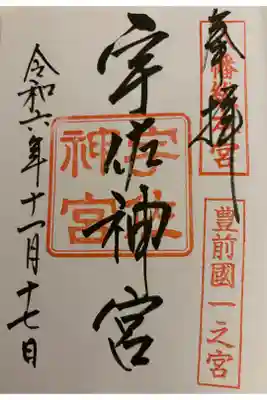 奉拝
豊前國一之宮
宇佐神宮
宇佐
神宮
令和六年十一月十七日